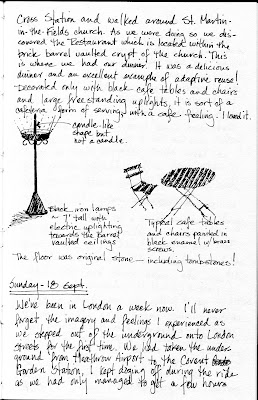 Cross Station and walked around St. Martin-
in-the-Fields church. As we were doing so we dis-
covered the Restaurant which is located within the
brick barrel vaulted crypt of the church. This
is where we had our dinner. It was a delicious
dinner and an excellent example of adaptive reuse!
Decorated only with black cafe tables and chairs
and large freestanding uplights, it is sort of a
cafeteria form of serving with a cafe feeling. I loved it.
candle-like
shape but
not a candle.
Black iron lamps
~ 7' tall with
electric uplighting
towards the barrel
vaulted ceilings
Typical cafe tables
and chairs painted in
black enamel w/ brass
screws.
The floor was original stone — including tombstones!
Sunday - 18 Sept.
We've been in London a week now. I'll never
forget the imagery and feelings I experienced as
we stepped out of the underground onto London
streets for the first time. We had taken the under-
ground from Heathrow Airport to the Covent
Garden Station, I kept dozing off during the ride
as we had only managed to get a few hours